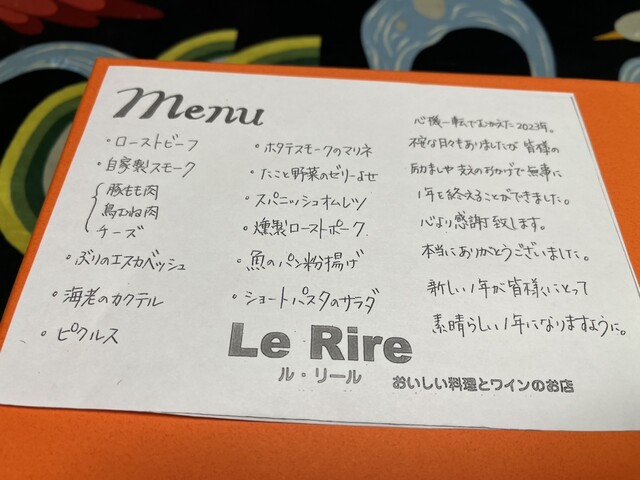 Menu
・ローストビーフ
・自家製スモーク
豚もも肉
鳥むね肉
チーズ
・ぶりのエスカベッシュ
・海老のカクテル
・ピクルス
・ホタテスモークのマリネ
・たこと野菜のゼリーよせ
・スパニッシュオムレツ
・燻製ローストポーク
・魚のパン粉揚げ
・ショートパスタのサラダ
心機一転でむかえた2023年。
不安な日々もありましたが皆様の
励ましや支えのおかげで無事に
1年を終えることができました。
心より感謝致します。
本当にありがとうございました。
新しい1年が皆様にとって
素晴らしい1年になりますように。
Le Rire
ル・リール
おいしい料理とワインのお店